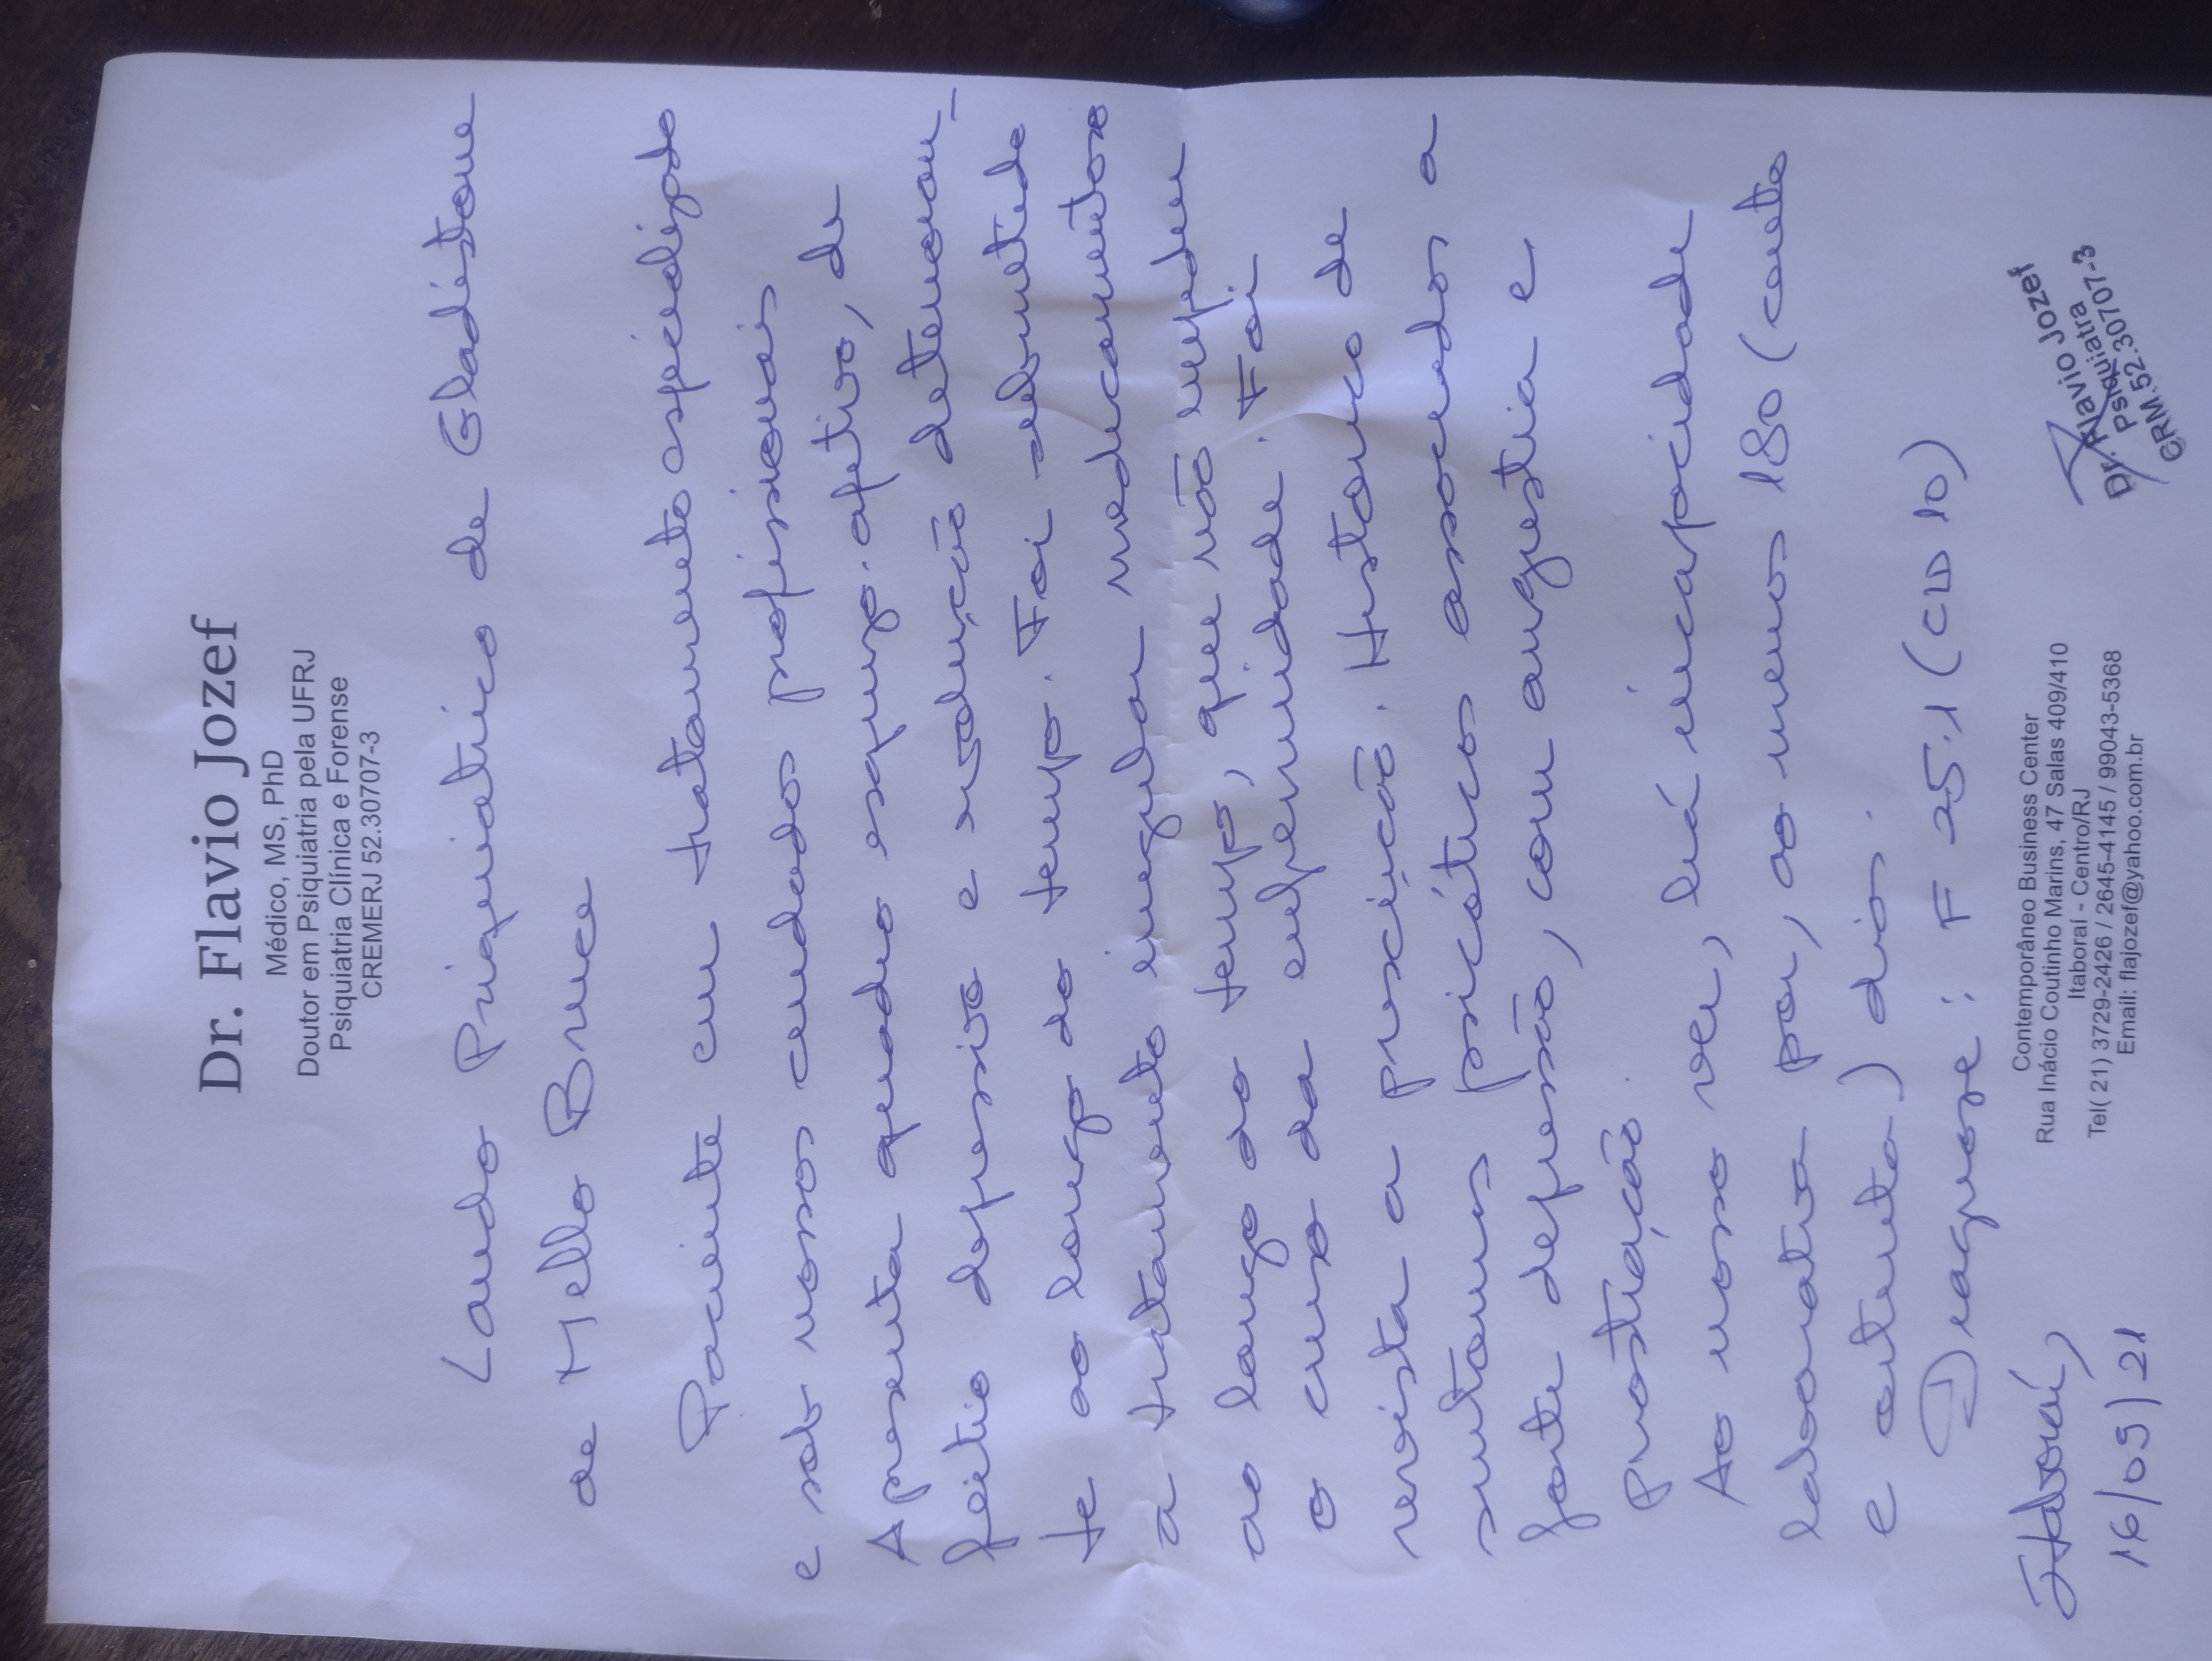 Dr. Flavio Jozef
Médico, MS, PhD
Doutor em Psiquiatria pela UFRJ
Psiquiatria Clínica e Forense
CREMERJ 52.30707-3
Laudo Psiquiátrico de Gladistone
de Mello Bruce
Paciente em tratamento especializado
e sob nossos cuidados profissionais
Apresenta quadro esquizo-afetivo, de
feitio depressivo e evolução deterioran-
te ao longo do tempo. Foi submetido
a tratamento irregular medicamentoso
ao longo do tempo, que não impediu
o curso da enfermidade. Foi
revista a prescrição. Histórico de
sintomas psicóticos associados a
forte depressão, com angústia e
prostração.
Ao nosso ver, há incapacidade
laborativa por, ao menos 180 (cento
e oitenta) dias.
Diagnose: F 25.1 (CID 10)
Itaboraí,
16/09/21
Contemporâneo Business Center
Rua Inácio Coutinho Marins, 47 Salas 409/410
Itaboraí - Centro/RJ
Tel( 21) 3729-2426 / 2645-4145 / 99043-5368
Email: flajozef@yahoo.com.br
Dr. Flavio Jozef
Psiquiatra
CRM.52.30707-3